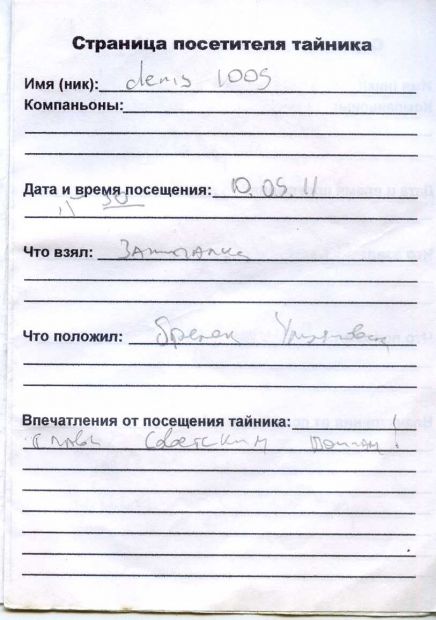 Страница посетителя тайника
Имя (ник): denis 1005
Компаньоны:
Дата и время посещения: 10.05.11
Что взял: Зажигалку
Что положил: брелек
Впечатления от посещения тайника:
слава Советским